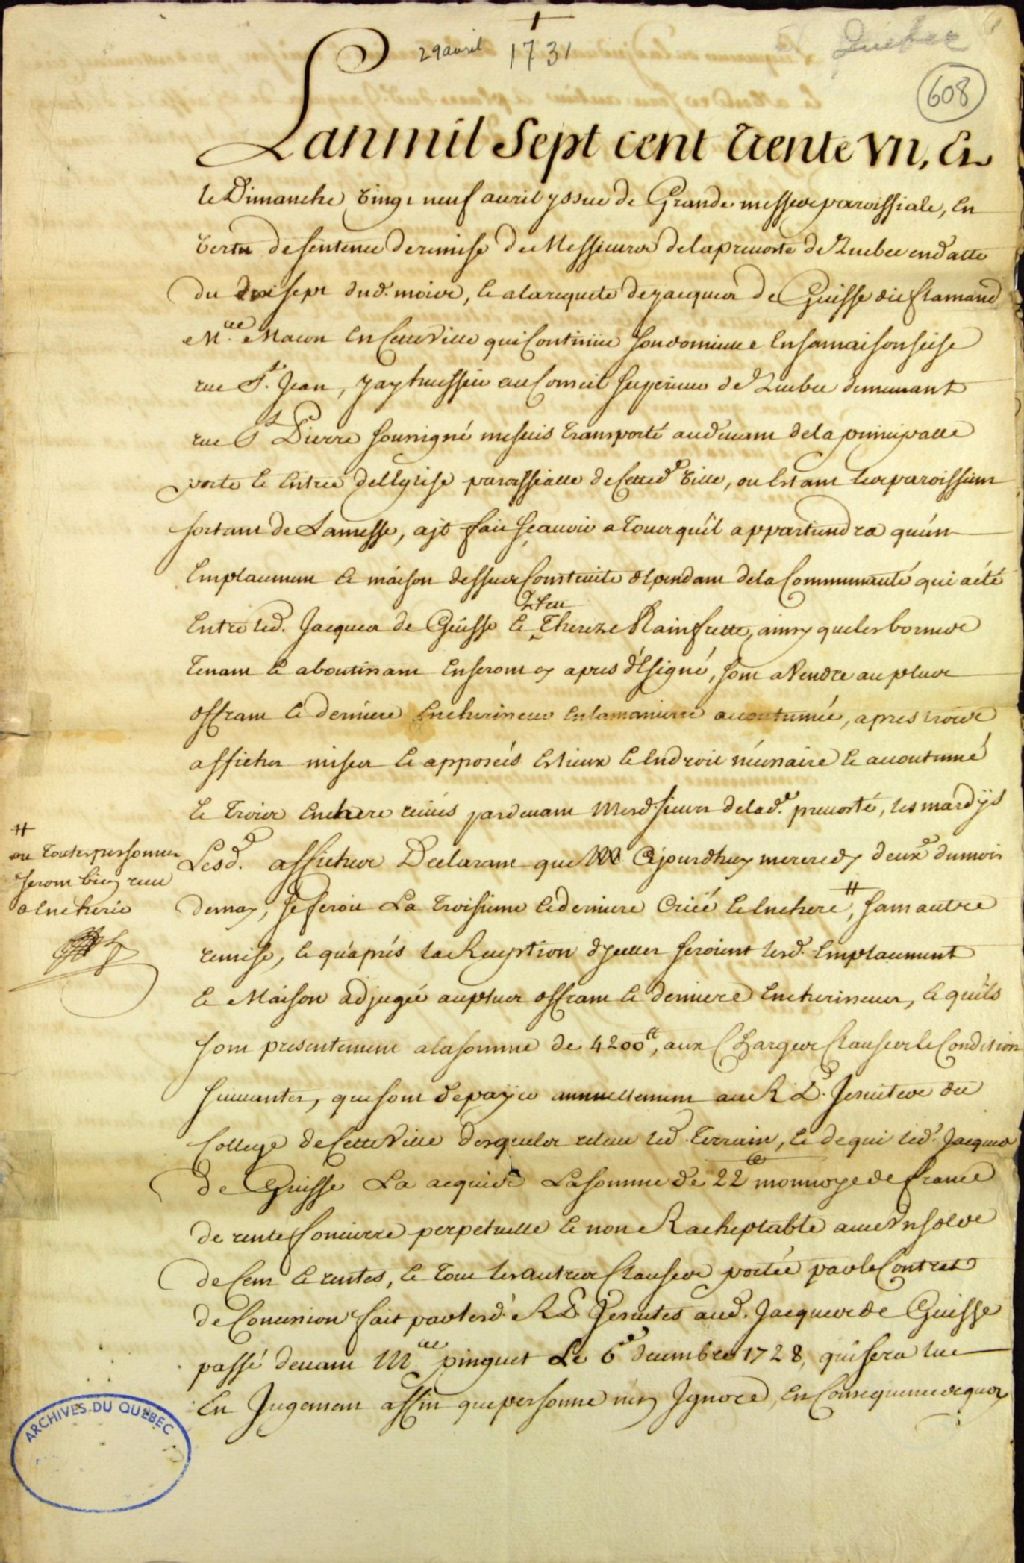 29 avril 1731
Quebec
608
Lanmil Sept cent trente Un, Et
le Dimanche vingt neuf avril yssue de Grande messe parroissiale, En
vertu de sentence de remise de Messieurs de la prevoste de Quebec en datte
du dix sept dud. mois, Et a la requeste de Jacques de Guisse dit flamand
Me. Macon En Cette Ville qui Continüe son domicille En sa maison scise
rue St. Jean, J'ay huissier au Conseil Superieur de Quebec demeurant
rue St Pierre sousigné me suis transporté au devant de la principalle
porte Et Entrée de l'Eglise parroissialle de Cette de. Ville, ou Estant les parroissiens
sortant de La messe, ait fait sçauoir a tous quil appartiendra qu'un
Emplacement Et maison dessus Construite dependant de la Communauté qui a été
Entre led. Jacques de Guisse Et feu Thereze Rainfrette, ainsy que les bornes
Tenant Et aboutissant En seront cy apres désigné, sont a Vendre au plus
offrant Et dernier Encherisseur En la maniere accoutumée, apres trois
affiches mises Et apposées Es lieux Et Endroit necessaire Et accoutumé
Et Trois Enchere reçues pardevant Mesd. Sieurs de lad. prevosté, les mardys
Lesd. affiches Declarant que Cejourdhuy mercredy deux du mois
de may, se feroit La troisieme Et derniere Criée Et Enchere #, sans autre
remise, Et qu'après la Reception d'jcelles seroient lesd. Emplacement
Et Maison adjugée au plus offrant Et dernier Encherisseur, Et qu'ils
sont presentement a la somme de 4200tt, aux Charges Clauses Et Condition
suivantes, qui sont de payer annuellement aux R.P. Jesuites du
College de Cette Ville desquels releve led. Terrain, Et de qui led. Jacques
de Guisse La acquis La somme de 22tt monnoye de france
de rente fonciere perpetuelle Et non Racheptable avec Un sol de
de Cens Et rentes, Et tous les autres Clauses portée par le Contrat
de Concession fait par lesd. R.P. Jesuites aud. Jacques de Guisse
passé devant Me pinguet Le 6e decembre 1728, qui sera lue
En Jugement affin que personne n'en Jgnore, En Consequence de quoy
#
ou toutes personnes
seront bien recue
a Encherir
ARCHIVES DU QUEBEC